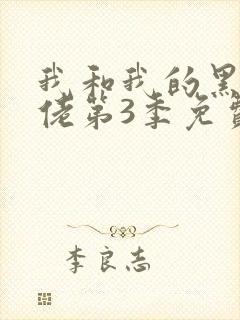 我和我的黑
佬第3季免费
李良志